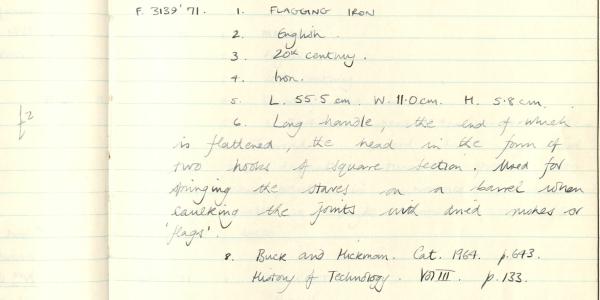 F. 3139'71. 1. FLAGGING IRON
2. English.
3. 20th century.
4. Iron.
5. L. 55.5 cm. W. 11.0 cm. H. 5.8 cm.
6. Long handle, the end of which
is flattened, the head in the form of
two hooks of square section. Used for
stringing the staves on a barrel when
caulking the joints with dried rushes or
'flags'.
8. Buck and Hickman. Cat. 1964. p.643.
History of Technology. Vol III. p.133.